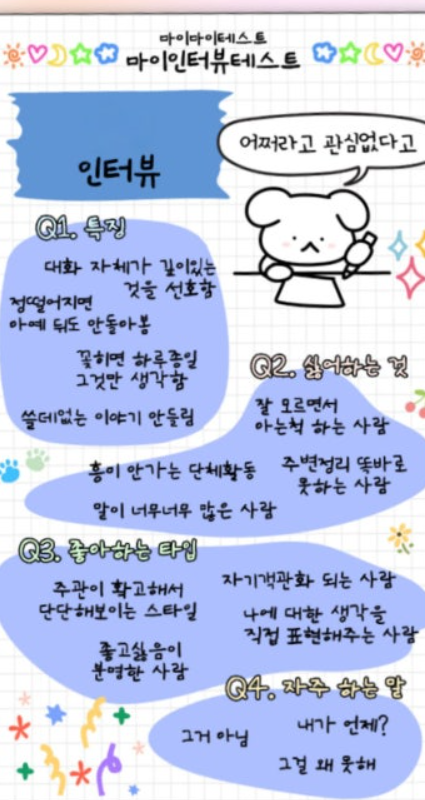 마이마이테스트
마이인터뷰테스트
인터뷰
어쩌라고 관심없다고
Q1. 특징
대화 자체가 깊이있는
것을 선호함
정떨어지면
아예 뒤도 안돌아봄
꽂히면 하루종일
그것만 생각함
쓸데없는 이야기 안들림
Q2. 싫어하는 것
잘 모르면서
아는척 하는 사람
흥이 안가는 단체활동
주변정리 똑바로
못하는 사람
말이 너무너무 많은 사람
Q3. 좋아하는 타입
주관이 확고해서
단단해보이는 스타일
자기객관화 되는 사람
나에 대한 생각을
직접 표현해주는 사람
좋고싫음이
분명한 사람
Q4. 자주 하는 말
그거 아님
내가 언제?
그걸 왜 못해